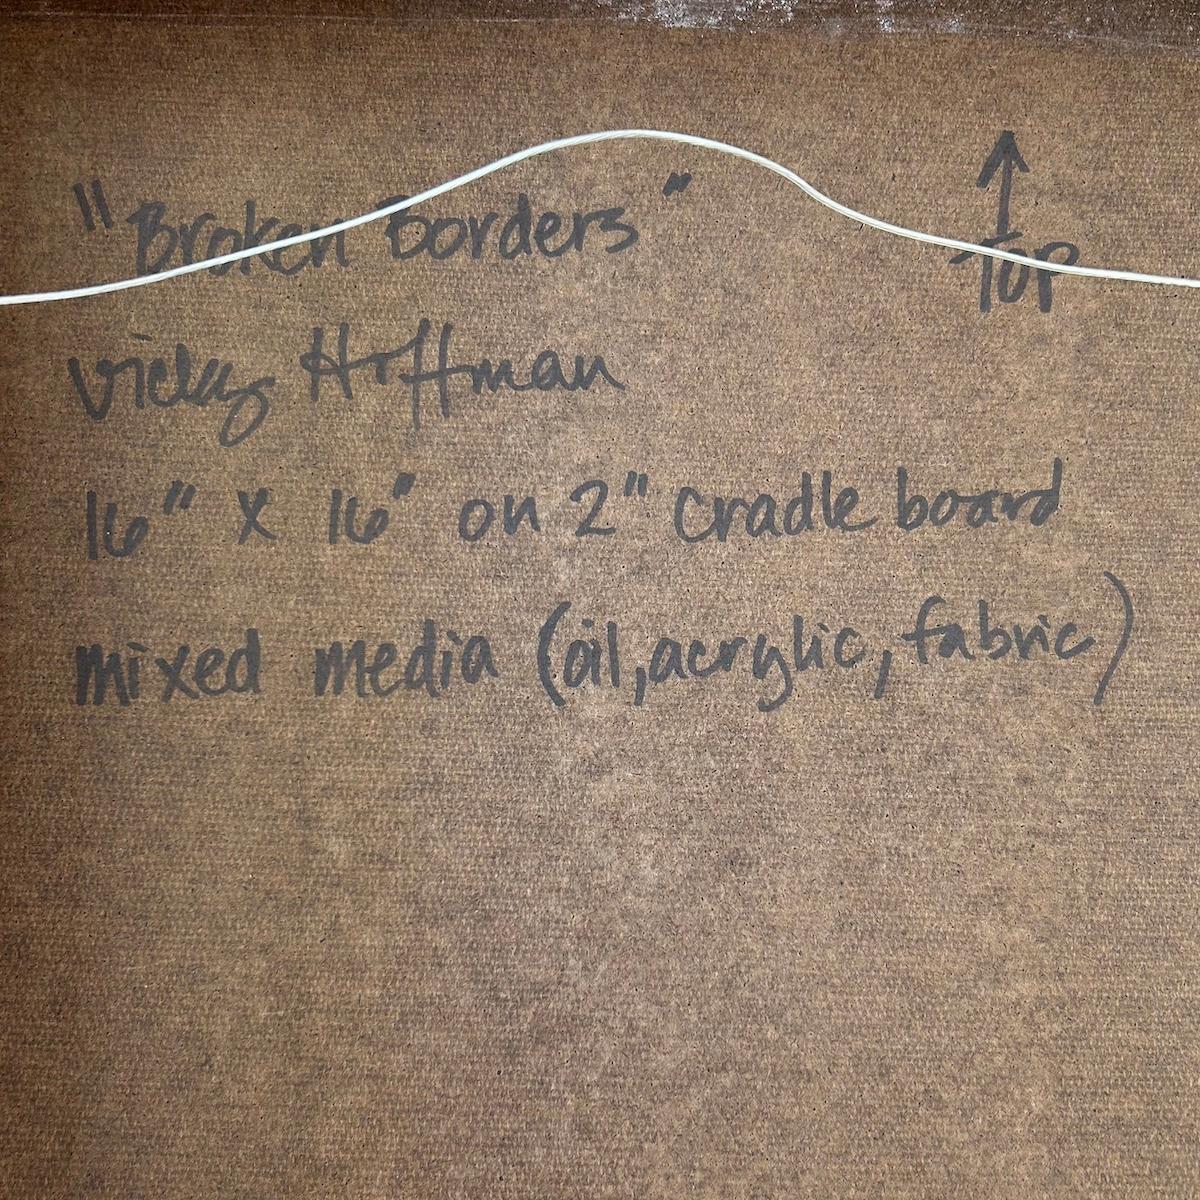 "Broken Borders"
↑
TOP
Vicky Hoffman
16" X 16" on 2" cradle board
mixed media (oil, acrylic, fabric)